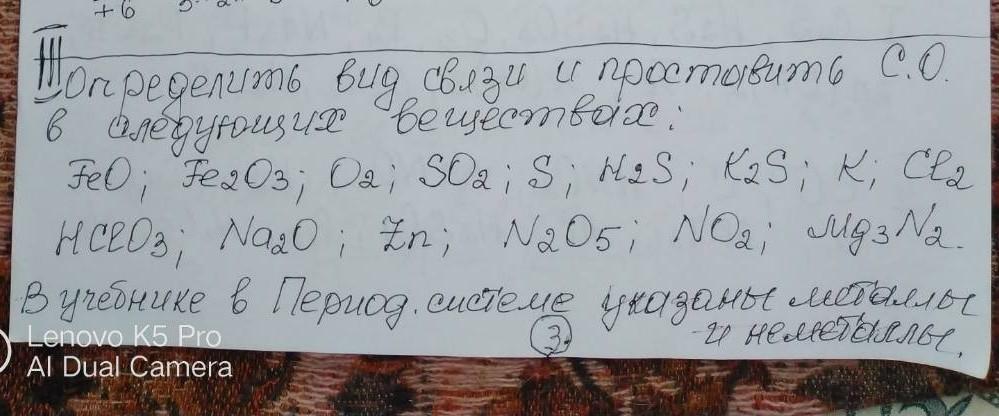 +6
III Определить вид связи и проставить С.О.
в следующих веществах:
FeO; Fe2O3; O2; SO2; S; H2S; K2S; K; Cl2
HClO3; Na2O; Zn; N2O5; NO2; Mg3N2.
В учебнике в Период. системе указаны металлы
и неметаллы.
3.
Lenovo K5 Pro
AI Dual Camera